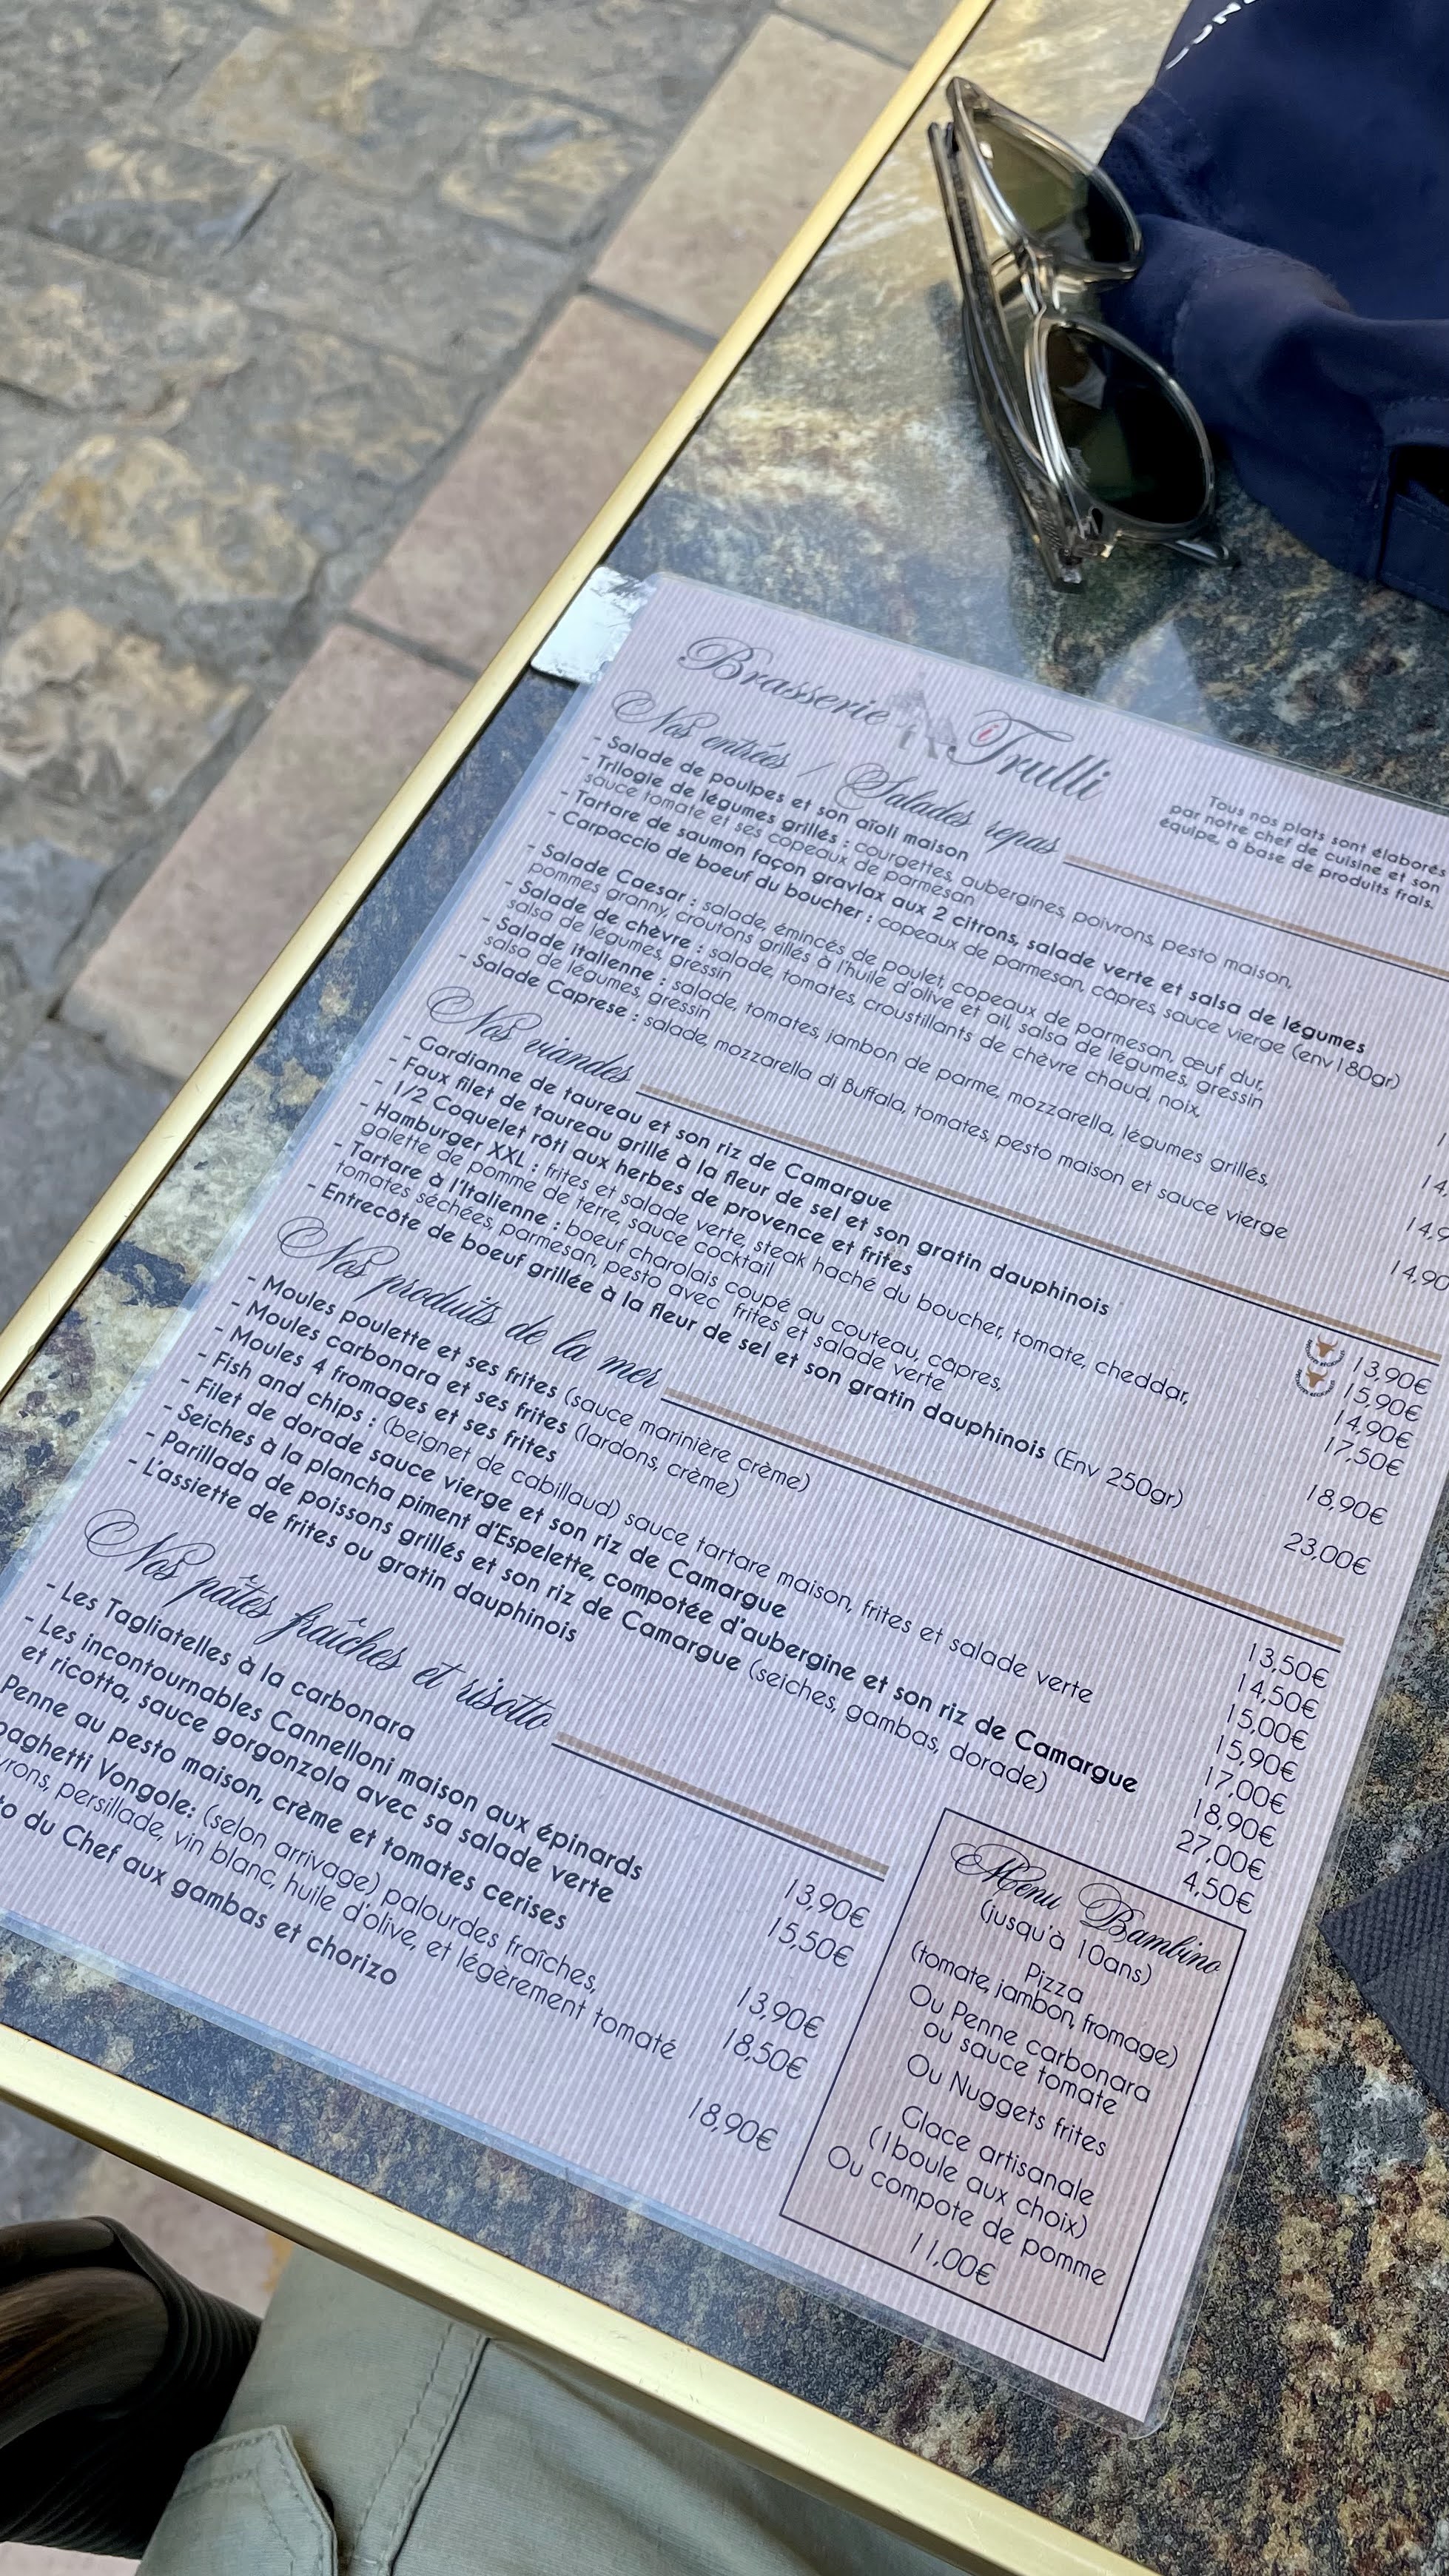 Brasserie i Trulli
Tous nos plats sont élaborés
par notre chef de cuisine et son
équipe, à base de produits frais.
Nos entrées / Salades repas
- Salade de poulpes et son aïoli maison
- Trilogie de légumes grillés : courgettes, aubergines, poivrons, pesto maison,
sauce tomate et ses copeaux de parmesan
- Tartare de saumon façon gravlax aux 2 citrons, salade verte et salsa de légumes
- Carpaccio de boeuf du boucher : copeaux de parmesan, câpres, sauce vierge (env 180gr)
- Salade Caesar : salade, émincés de poulet, copeaux de parmesan, œuf dur,
pommes granny, croutons grillés à l'huile d'olive et ail, salsa de légumes, gressin
- Salade de chèvre : salade, tomates, croustillants de chèvre chaud, noix,
salsa de légumes, gressin
- Salade italienne : salade, tomates, jambon de parme, mozzarella, légumes grillés,
salsa de légumes, gressin
- Salade Caprese : salade, mozzarella di Buffala, tomates, pesto maison et sauce vierge 14,90
Nos viandes
- Gardianne de taureau et son riz de Camargue 13,90€
- Faux filet de taureau grillé à la fleur de sel et son gratin dauphinois 15,90€
- 1/2 Coquelet rôti aux herbes de provence et frites 14,90€
- Hamburger XXL : frites et salade verte, steak haché du boucher, tomate, cheddar, 17,50€
galette de pomme de terre, sauce cocktail
- Tartare à l'Italienne : boeuf charolais coupé au couteau, câpres, 18,90€
tomates séchées, parmesan, pesto avec frites et salade verte
- Entrecôte de boeuf grillée à la fleur de sel et son gratin dauphinois (Env 250gr) 23,00€
Nos produits de la mer
- Moules poulette et ses frites (sauce marinière crème) 13,50€
- Moules carbonara et ses frites (lardons, crème) 14,50€
- Moules 4 fromages et ses frites 15,00€
- Fish and chips : (beignet de cabillaud) sauce tartare maison, frites et salade verte 15,90€
- Filet de dorade sauce vierge et son riz de Camargue 17,00€
- Seiches à la plancha piment d'Espelette, compotée d'aubergine et son riz de Camargue 18,90€
- Parillada de poissons grillés et son riz de Camargue (seiches, gambas, dorade) 27,00€
- L'assiette de frites ou gratin dauphinois 4,50€
Nos pâtes fraîches et risotto
- Les Tagliatelles à la carbonara 13,90€
- Les incontournables Cannelloni maison aux épinards 15,50€
et ricotta, sauce gorgonzola avec sa salade verte
Penne au pesto maison, crème et tomates cerises 13,90€
paghetti Vongole: (selon arrivage) palourdes fraîches, 18,50€
vrons, persillade, vin blanc, huile d'olive, et légèrement tomaté
to du Chef aux gambas et chorizo 18,90€
Menu Bambino
(jusqu'à 10ans)
Pizza
(tomate, jambon, fromage)
Ou Penne carbonara
ou sauce tomate
Ou Nuggets frites
Glace artisanale
(1boule aux choix)
Ou compote de pomme
11,00€